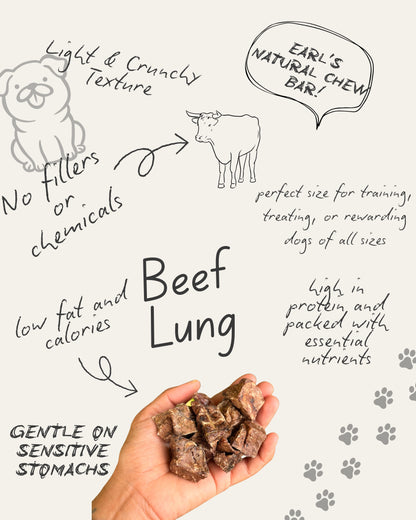 Light & Crunchy
Texture
EARL'S
NATURAL CHEW
BAR!
No fillers
or
chemicals
perfect size for training,
treating, or rewarding
dogs of all sizes
Beef
Lung
low fat and
calories
high in
protein and
packed with
essential
nutrients
GENTLE ON
SENSITIVE
STOMACHS